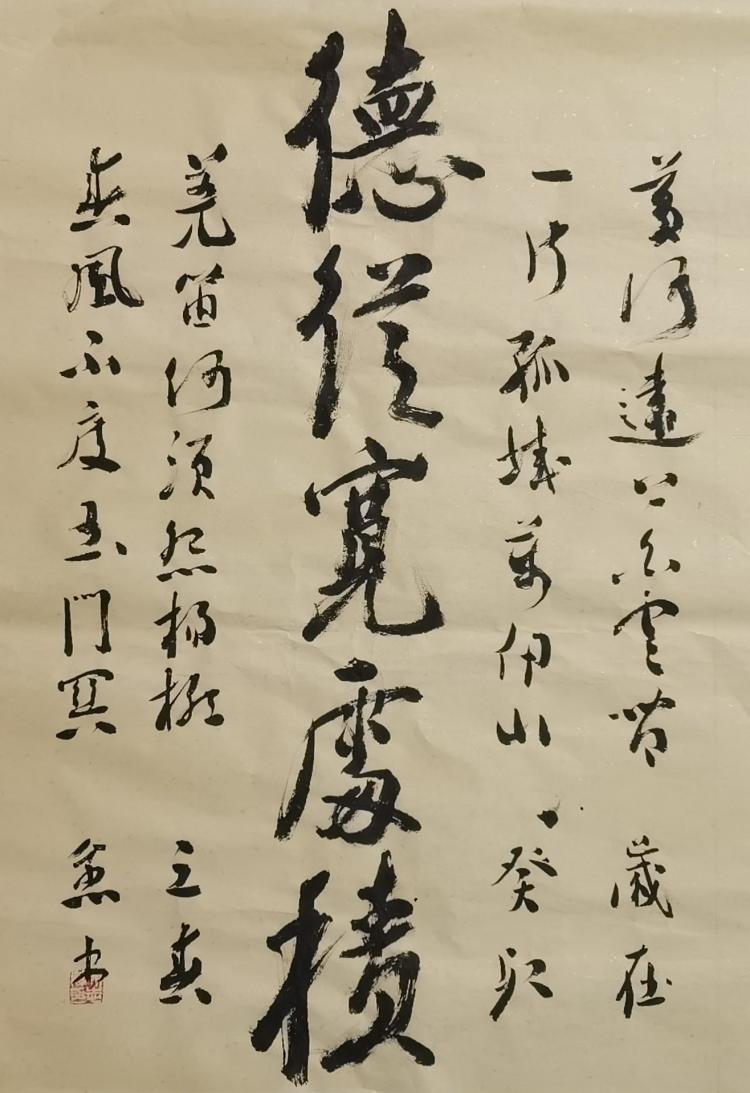 黄河遠上白雲間 歲在
一片孤城萬仞山 癸卯
德從寬處積
羌笛何須怨楊柳 之春
春風不度玉門関 書